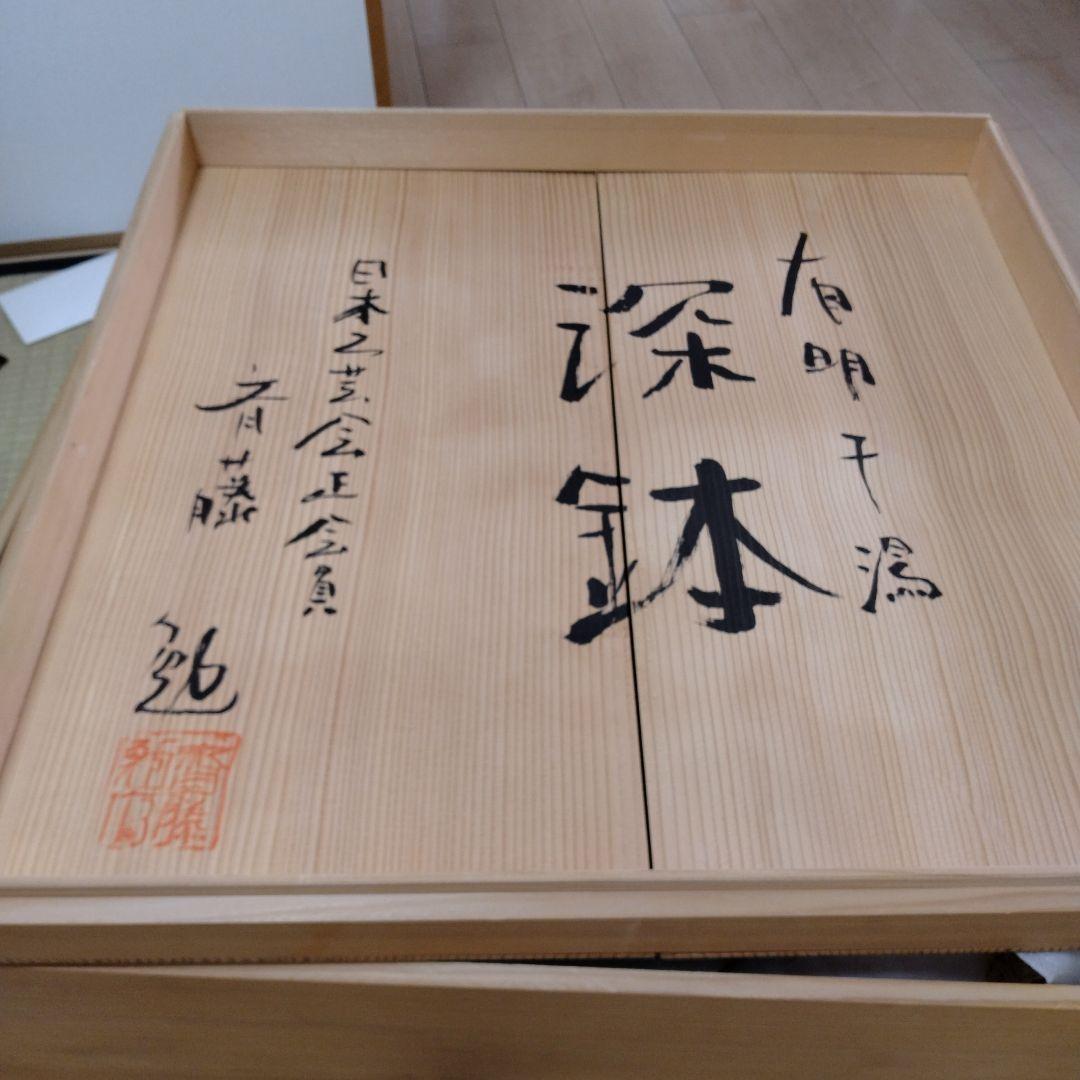 有明干潟
深鉢
日本工芸会正会員
斉藤 勉